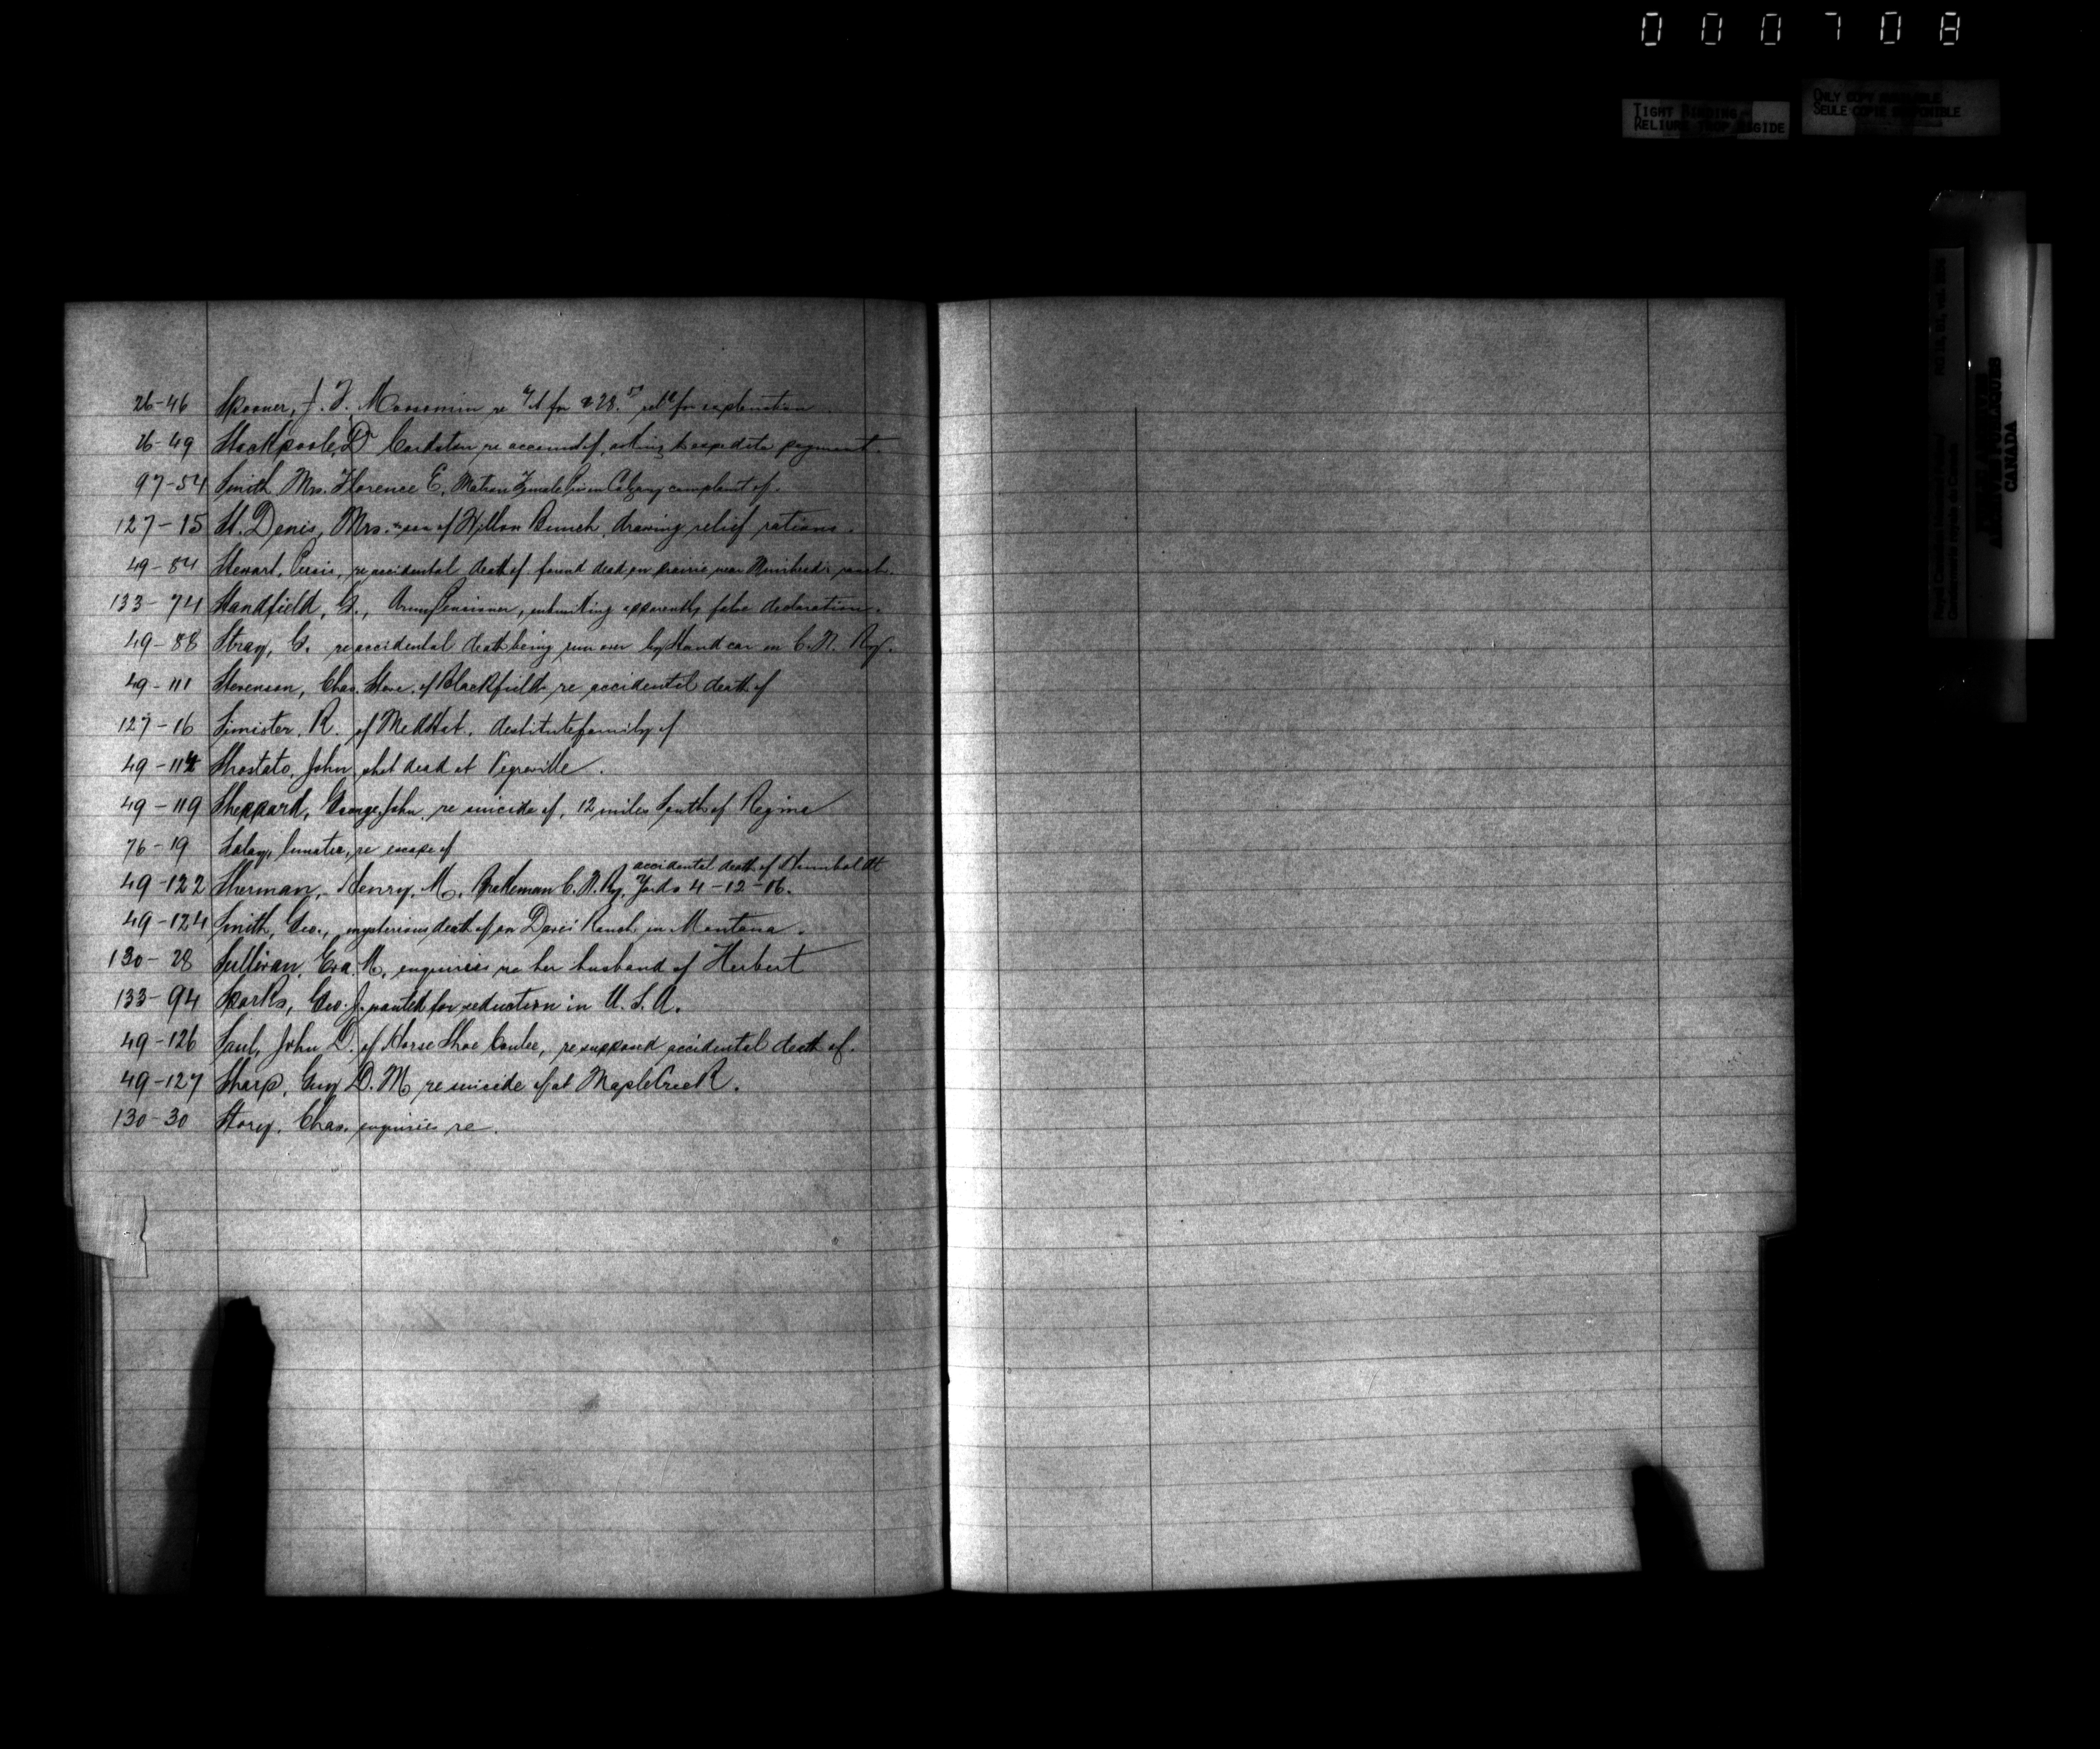 000708
TIGHT BINDING
RELIURE TROP RIGIDE
ONLY COPY AVAILABLE
SEULE COPIE DISPONIBLE
CANADA
26-46 Spooner, J. F. Moosomin re a/c for $28. ret'd for explanation
26-49 Stackpoole, D Cardston re account of, asking to expedite payment.
97-54 Smith Mrs. Florence E. Matron Female Prison Calgary complaint of.
127-15 St. Denis, Mrs. son of Hilton Bunch, drawing relief rations.
49-84 Stewart, re accidental death of. found dead on prairie near Muirhead's ranch.
133-74 Standfield, G., Army Pensioner, submitting apparently false declaration.
49-88 Stray, G. re accidental death being run over by Hand car on C.N. Ry.
49-111 Stevenson, Chas. of Blackfield re accidental death of
127-16 Simister, R. of Med Hat. destitute family of
49-114 Shostato, John shot dead at Vegreville.
49-119 Sheppard, George John, re suicide of, 12 miles South of Regina
76-19 lunatic, re escape of
accidental death of Humboldt
49-122 Sherman, Henry. M. Brakeman C.N. Ry. Yards 4-12-06.
49-124 Smith, Geo., mysterious death of on Davis Ranch in Montana.
130-28 Sullivan, Eva. M, enquiries re her husband of Herbert
133-94 Sparks, Geo. J. wanted for seduction in U.S.A.
49-126 Saul, John D. of Horse Shoe Coulee, re supposed accidental death of.
49-127 Sharp, Guy D. M re suicide of at Maple Creek.
130-30 Storey, Chas. enquiries re.